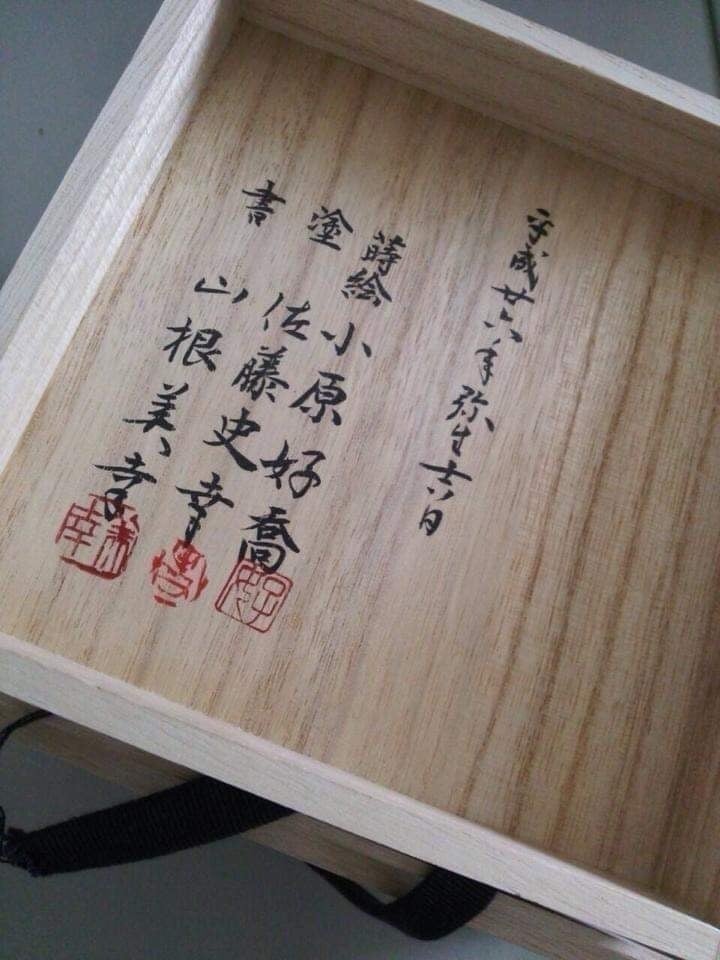 平成廿六年弥生吉日
蒔絵 小原好喬
好
塗 佐藤史幸
書 山根美幸
美幸